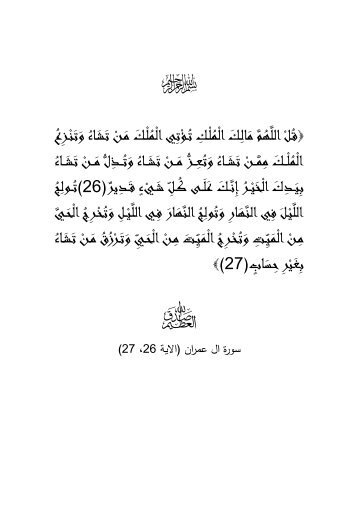 بسم الله الرحمن الرحيم
﴿قُلْ اللَّهُمَّ مَالِكَ الْمُلْكِ تُؤْتِي الْمُلْكَ مَنْ تَشَاءُ وَتَنْزِعُ
الْمُلْكَ مِمَّنْ تَشَاءُ وَتُعِزُّ مَنْ تَشَاءُ وَتُذِلُّ مَنْ تَشَاءُ
بِيَدِكَ الْخَيْرُ إِنَّكَ عَلَى كُلِّ شَيْءٍ قَدِيرٌ(26)تُولِجُ
اللَّيْلَ فِي النَّهَارِ وَتُولِجُ النَّهَارَ فِي اللَّيْلِ وَتُخْرِجُ الْحَيَّ
مِنْ الْمَيِّتِ وَتُخْرِجُ الْمَيِّتَ مِنْ الْحَيِّ وَتَرْزُقُ مَنْ تَشَاءُ
بِغَيْرِ حِسَابٍ(27)﴾
صدق الله العظيم
سورة ال عمران (الاية 26، 27)